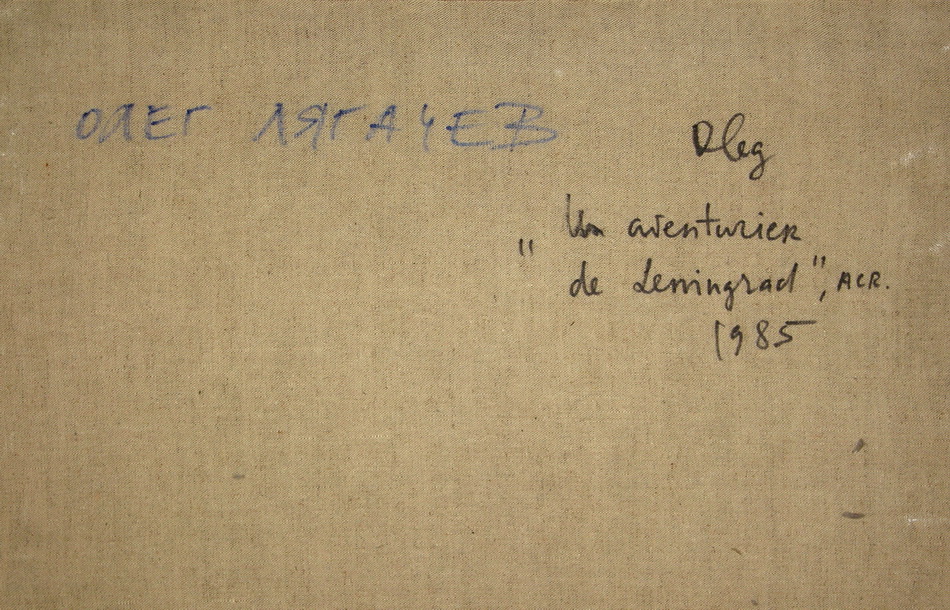 ОЛЕГ ЛЯГАЧЕВ
Oleg
"Un aventurier
de Leningrad", ACR.
1985